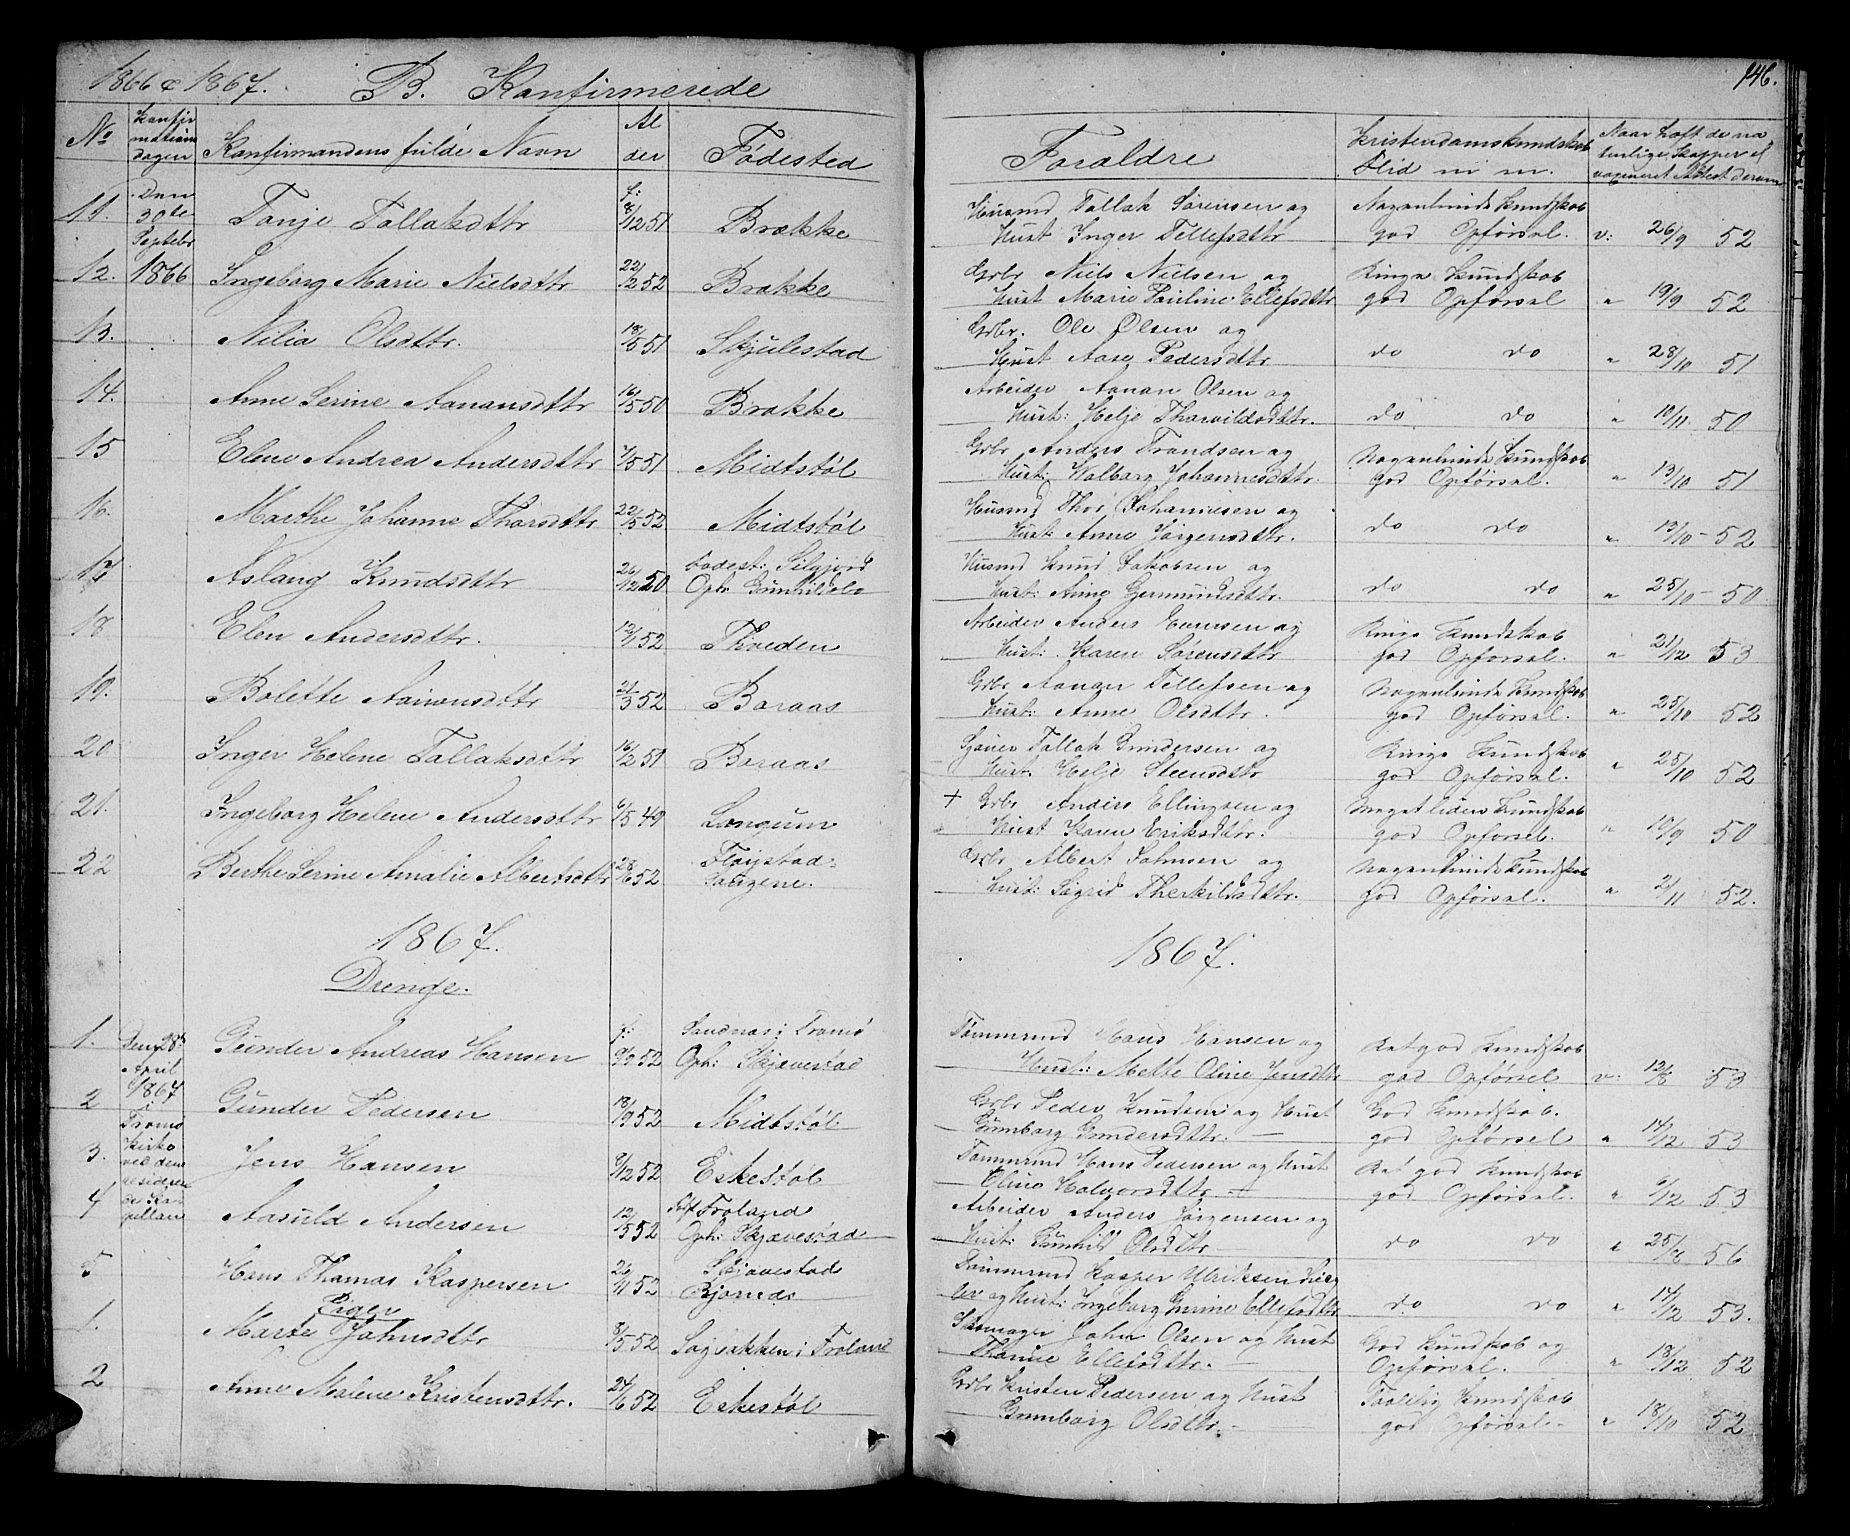 1866 & 1867. B. Konfirmerede
146.
No Konfirmations dagen Konfirmandens fulde Navn Alder Fødested Foraldre Kristendomskundskab Flid m m. Naar haft de naturlige Kopper el vagsineret Attest derom
11. Den 30te Septebr Tonje Tallaksdttr f: 8/12 51 Brække Husmd Tallak Sørensen og
Hust Inger Tellefsdttr Nogenlunde Kundskab god Opførsel. v: 26/9 52
12. 1866 Ingeborg Marie Nielsdttr 22/2 52 Brække Grbr Niels Nielsen og
Hust Marie Pauline Ellefsdttr Ringe Kundskab god Opførsel " 19/9 52
13. Nilia Olsdttr. 51 Skjulestad Grbr. Ole Olsen og
Hust Aase Pedersdttr do do " 28/10 51
14. Anne Serine Aanansdttr 16/5 50 Brække Arbeider Aanan Olsen og
Hust: Helje Tharvildsdttr. do do " 10/11 50
15 Elene Andrea Andersdttr 7/5 51 Midtstøl Grbr Anders Trondsen og
Hust: Walborg Johannesdttr. Nogenlunde Kundskab god Opførsel. " 13/10 51
16. Marthe Johanne Thorsdttr 22/5 52 Midtstøl Husmd Thor Johannesen og
Hust: Anne Jørgensdttr. do do " 13/10 - 52
17 Aslaug Knudsdttr 26/12 50 Fødest: Silgjord
Oph: Gunhildsbo Husmd Knud Jakobsen og
Hust: Anne Germundsdttr. do do " 25/10 - 50
18 Elen Andersdttr. 12/1 52 Thveden Arbeider Anders og
Hust: Karen Sørensdttr Ringe Kundskab god Opførsel. " 21/12 53
19. Bolette Aanonsdttr 21/3 52 Boraas Grbr Aanon Tellefsen og
Hust: Anne Olsdttr. Nogenlunde Kundskab god Opførsel. " 25/10 52
20 Inger Helene Tallaksdttr 16/2 51 Boraas Tallak Gundersen og
Hust. Helje Steensdttr Ringe Kundskab god Opførsel. " 25/10 52
21. Ingeborg Helene Andersdttr 6/5 49 Longum + Grbr Anders Ellingsen og
Hust Karen Eriksdttr. Meget liden Kundskab god Opførsel. " 19/9 50
22 Berthe Serine Amalie Albertsdttr 28/6 52 Fløistad- Grbr Albert Johnsen og
Hust: Sigrid Therkildsdttr. Nogenlunde Kundskab god Opførsel. " 2/11 52.
1867. 1867.
Drenge.
1. Den 28de April Gunder Andreas Hansen f: 9/9 52 Sandnæs i Tromø
Oph: Skjævestad Tømmrmd Hans Hansen og
Hust: Mette Oline Jensdttr Ret god Kundskab god Opførsel v: 12/8 53
2 1867 i Tromø Gunder Pedersen 18/9 52 Midtstøl Grbr Peder Knudsen og Hust
Gunborg Gundersdttr. God Kundskab. god Opførsel " 14/12 53
3. Kirke ved den residerende Jens Hansen 9/12 52 Eskestøl Tømmrmd Hans Pedersen og Hust
Oline Halvorsdttr Ret god Kundskab god Opførsel. " 6/12 53
4 Kapellan Aasuld Andersen 12/5 52 Froland
Oph: Skjævestad Arbeider Anders Jørgensen og
Hust: Gunhild Olsdttr do do " 25/8 56
5 Hans Thomas Kaspersen 26/11 52 Skjævestad Bjønnes Tømmrmd Kasper Ulriksen
og Hust: Ingeborg Gurine Ellefsdttr do do " 14/12 53.
Piger
1. Marte Johnsdttr 8/5 52 Sagbakken i Froland Skomager John Olsen og Hust
Thomine Ellefsdttr. God Kundskab og Opførsel. " 18/12 52
2 Anne Malene Kristensdttr. 24/6 52 Eskestøl Grbr Kristen Pedersen og Hust
Gunborg Olsdttr. Taalelig Kundskab god Opførsel " 18/10 52